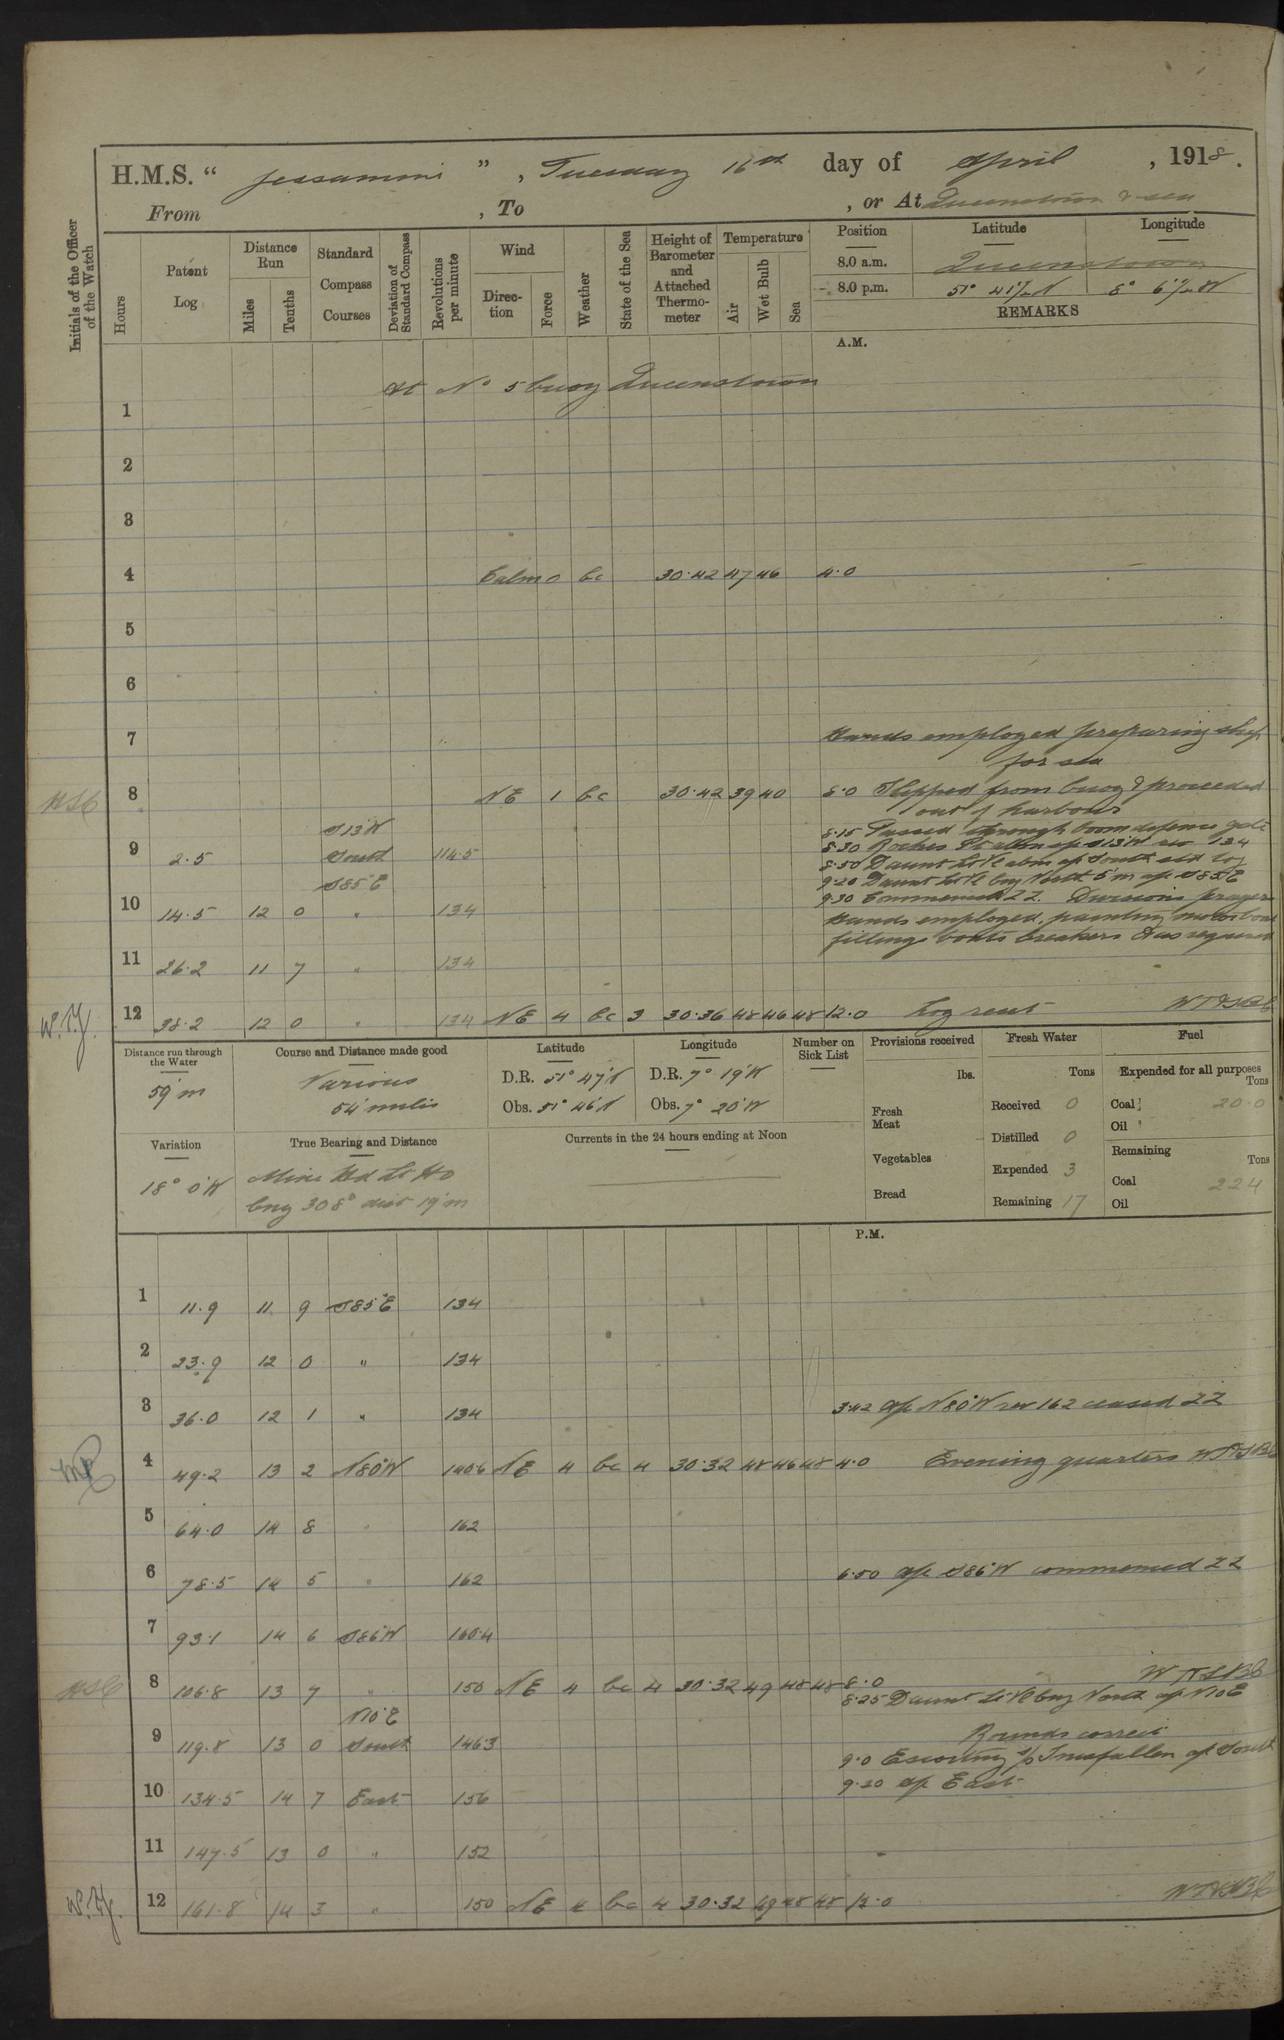 H.M.S. “ Jessamine ”, Tuesday 16th day of April, 1918.
From , To , or At Queenstown & sea
Initials of the Officer of the Watch
Hours
Patent Log
Distance Run
Miles
Tenths
Standard Compass Courses
Deviation of Standard Compass
Revolutions per minute
Wind
Direction
Force
Weather
State of the Sea
Height of Barometer and Attached Thermometer
Temperature
Air
Wet Bulb
Sea
Position Latitude Longitude
8.0 a.m. Queenstown
8.0 p.m. 51° 41½'N 8° 6½'W
REMARKS
A.M.
At No 5 buoy Queenstown
1
2
3
4 Calm 0 bc 30.42 47 46 4.0
5
6
7 Hands employed preparing ship
for sea
8 NE 1 bc 30.42 39 40 8.0 Slipped from buoy & proceeded
out of harbour
S13°W 8.15 Passed through boom defence gate
9 2.5 South 114.5 8.30 Roches Pt abm a/c S13°W rev 134
8.50 Daunt Lt Vl abm a/c South set log
S85°E 9.20 Daunt Lt Vl brg North 5'm a/c S85°E
9.30 Commenced ZZ. Divisions prayers
10 14.5 12 0 " 134
Hands employed, painting motor boat
filling boats breakers & as requisite
11 26.2 11 7 " 134
12 38.2 12 0 " 134 NE 4 bc 3 30.36 48 46 48 12.0 Log reset
W.Y.
Distance run through the Water
59'm
Course and Distance made good
Various
54' miles
Latitude
D.R. 51° 47'N
Obs. 51° 46'N
Longitude
D.R. 7° 19'W
Obs. 7° 20'W
Number on Sick List
Provisions received
lbs.
Fresh Meat
Vegetables
Bread
Fresh Water
Tons
Received 0
Distilled 0
Expended 3
Remaining 17
Fuel
Expended for all purposes
Tons
Coal 20.0
Oil
Remaining
Tons
Coal 224
Oil
Variation
18° 0'W
True Bearing and Distance
Mine Hd Lt Ho
brg 308° dist 19'm
Currents in the 24 hours ending at Noon
P.M.
1 11.9 11 9 S85°E 134
2 23.9 12 0 " 134
3 36.0 12 1 " 134 3.42 a/c N80°W rev 162 ceased ZZ
4 49.2 13 2 N80°W 140.6 NE 4 bc 4 30.32 48 46 48 4.0 Evening quarters
5 64.0 14 8 " 162
6 78.5 14 5 " 162 6.50 a/c S86°W commenced ZZ
7 93.1 14 6 S86°W 160.4
8 106.8 13 7 " 150 NE 4 bc 4 30.32 49 48 48 8.0
N10°E 8.25 Daunt Lt Vl brg North a/c N10E
Rounds correct
9 119.8 13 0 South 146.3 9.0 Escorting s/s Innisfallen a/c South
9.20 a/c East
10 134.5 14 7 East 156
11 147.5 13 0 " 152
12 161.8 14 3 " 150 NE 4 bc 4 30.32 49 48 48 12.0
W.Y.